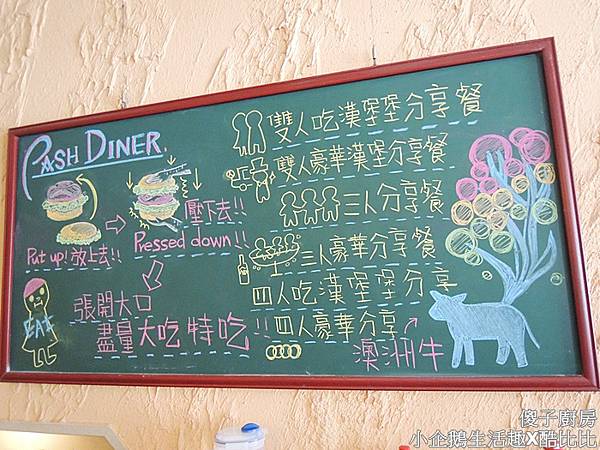 PASH DINER.
Put up! 放上去!!
壓下去!!
Pressed down!!
張開大口
盡量大吃特吃!!
EAT
雙人吃漢堡堡分享餐
雙人豪華漢堡分享餐
三人分享餐
三人豪華分享餐
四人吃漢堡堡分享
四人豪華分享
澳洲牛
傻子廚房
小企鵝生活趣X酷比比